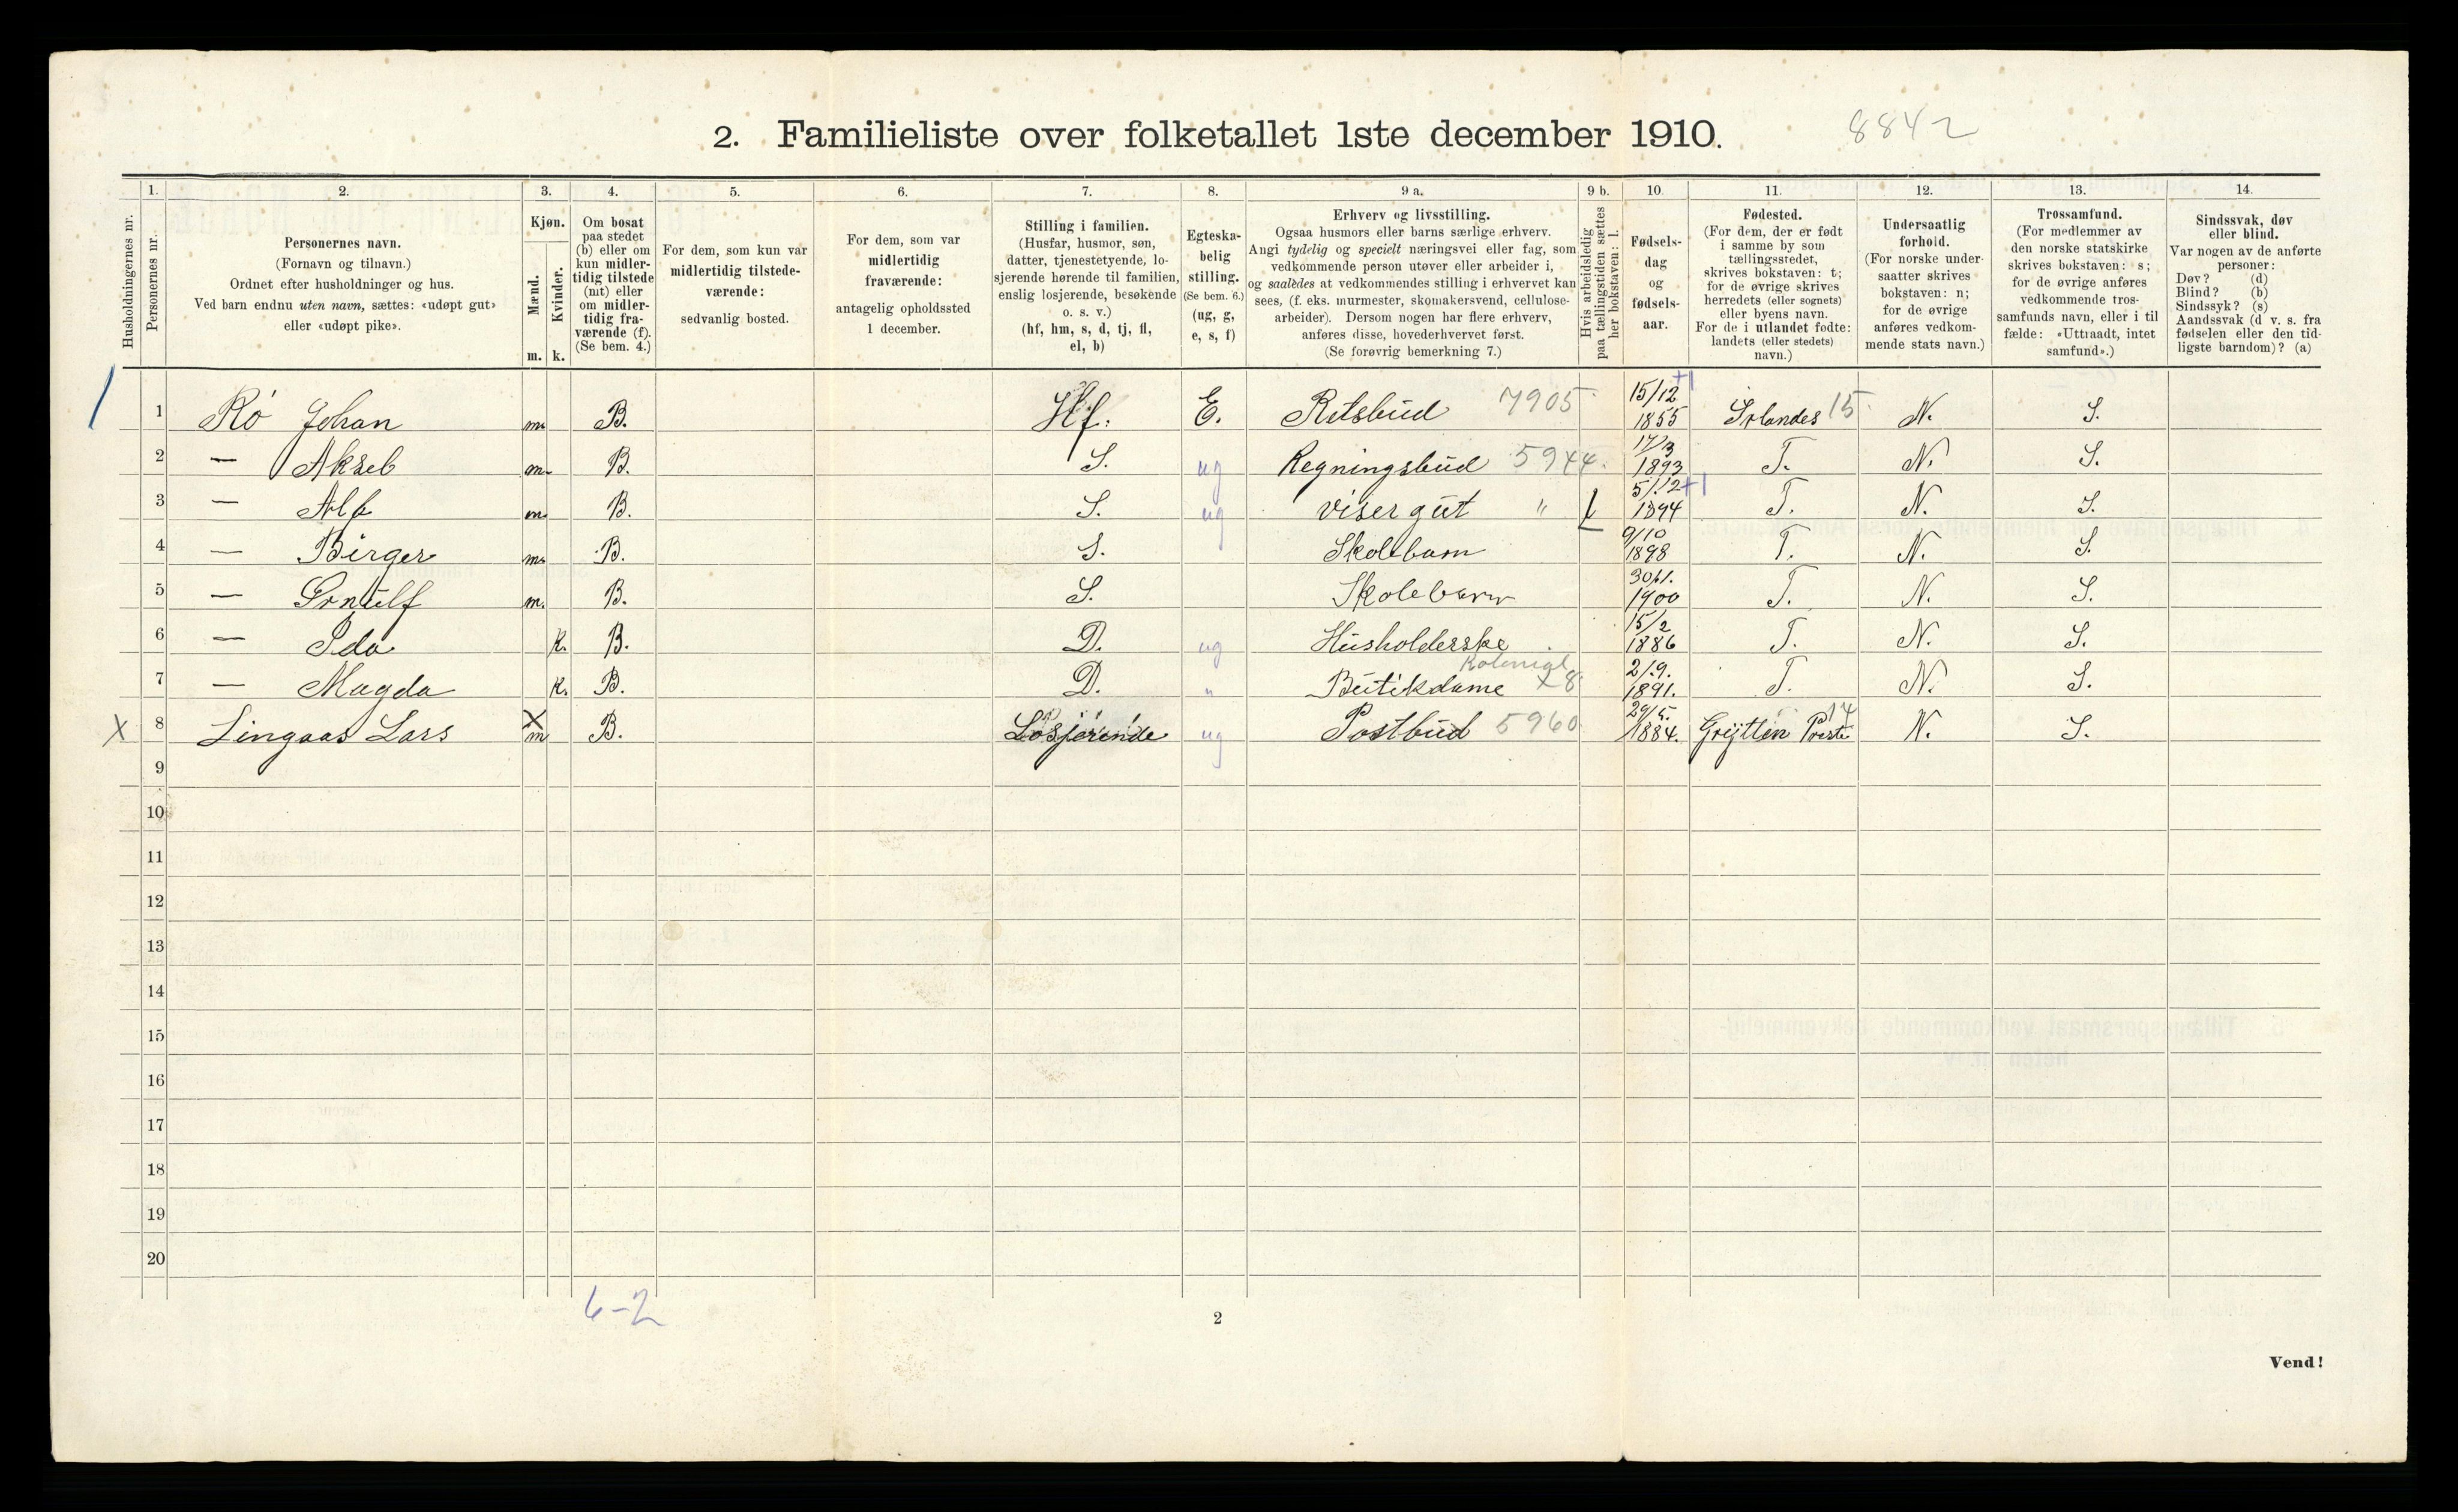 2. Familieliste over folketallet 1ste december 1910. 8842
Husholdningernes nr.
1. Personernes nr.
2. Personernes navn. (Fornavn og tilnavn.) Ordnet efter husholdninger og hus. Ved barn endnu uten navn, sættes: «udøpt gut» eller «udøpt pike».
3. Kjøn. Mænd. m. Kvinder. k.
4. Om bosat paa stedet (b) eller om kun midler- tidig tilstede (mt) eller om midler- tidig fra- værende (f). (Se bem. 4.)
5. For dem, som kun var midlertidig tilstede- værende: sedvanlig bosted.
6. For dem, som var midlertidig fraværende: antagelig opholdssted 1 december.
7. Stilling i familien. (Husfar, husmor, søn, datter, tjenestetyende, lo- sjerende hørende til familien, enslig losjerende, besøkende o. s. v.) (hf, hm, s, d, tj, fl, el, b)
8. Egteska- belig stilling. (Se bem. 6.) (ug, g, e, s, f)
9 a. Erhverv og livsstilling. Ogsaa husmors eller barns særlige erhverv. Angi tydelig og specielt næringsvei eller fag, som vedkommende person utøver eller arbeider i, og saaledes at vedkommendes stilling i erhvervet kan sees, (f. eks. murmester, skomakersvend, cellulose- arbeider). Dersom nogen har flere erhverv, anføres disse, hovederhvervet først. (Se forøvrig bemerkning 7.)
9 b. Hvis arbeidsledig paa tællingstiden sættes her bokstaven: l.
10. Fødsels- dag og fødsels- aar.
11. Fødested. (For dem, der er født i samme by som tællingsstedet, skrives bokstaven: t; for de øvrige skrives herredets (eller sognets) eller byens navn. For de i utlandet fødte: landets (eller stedets) navn.)
12. Undersaatlig forhold. (For norske under- saatter skrives bokstaven: n; for de øvrige anføres vedkom- mende stats navn.)
13. Trossamfund. (For medlemmer av den norske statskirke skrives bokstaven: s; for de øvrige anføres vedkommende tros- samfunds navn, eller i til fælde: «Uttraadt, intet samfund».)
14. Sindssvak, døv eller blind. Var nogen av de anførte personer: Døv? (d) Blind? (b) Sindssyk? (s) Aandssvak (d v. s. fra fødselen eller den tid- ligste barndom)? (a)
1 1 Rö Johan m. B. Hf. E. Retsbud 7905 15/12 +1 1855 15 N. S.
2 — Aksel m. B. S. ug Regningsbud 5944. 17/3 1893 T. N. S.
3 — Alf m. B. S. ug visergut " l 5/12 +1 1894 T. N. S.
4 — Birger m. B. S. Skolebarn 9/10 1898 T. N. S.
5 — m. B. S. Skolebarn 30/1. 1900 T. N. S.
6 — Ida k. B. D. ug Husholderske 15/2 1886 T. N. S.
7 — Magda k. B. D. " Butikdame Kolonial x 8 2/9. 1891. T. N. S.
X 8 Lingaas Lars X m B. Losjerende ug Postbud 5960 29/5. 1884. Grytten 14 N. S.
9
10
11
12
13
14
15
16
17
18
19
20
6-2
2
Vend!